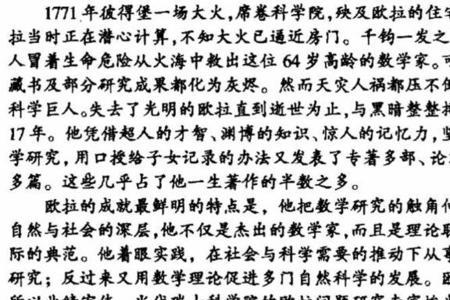 1771年彼得堡一场大火,席卷科学院,殃及欧拉的住宅
拉当时正在潜心计算,不知大火已逼近房门。千钧一发之
人冒着生命危险从火海中救出这位64岁高龄的数学家。
藏书及部分研究成果都化为灰烬。然而天灾人祸都压不
科学巨人。失去了光明的欧拉直到逝世为止,与黑暗整整
17年。他凭借超人的才智、渊博的知识、惊人的记忆力,
学研究,用口授给子女记录的办法又发表了专著多部、论
多篇。这些几乎占了他一生著作的半数之多。
欧拉的成就最鲜明的特点是,他把数学研究的触角
自然与社会的深层,他不仅是杰出的数学家,而且是理论
际的典范。他着眼实践,在社会与科学需要的推动下从
研究;反过来又用数学理论促进多门自然科学的发展。